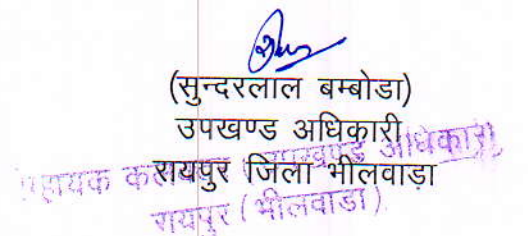 (सुन्दरलाल बम्बोडा)
उपखण्ड अधिकारी
रायपुर जिला भीलवाड़ा
सहायक कलक्टर (उपखण्ड अधिकारी)
रायपुर (भीलवाड़ा)